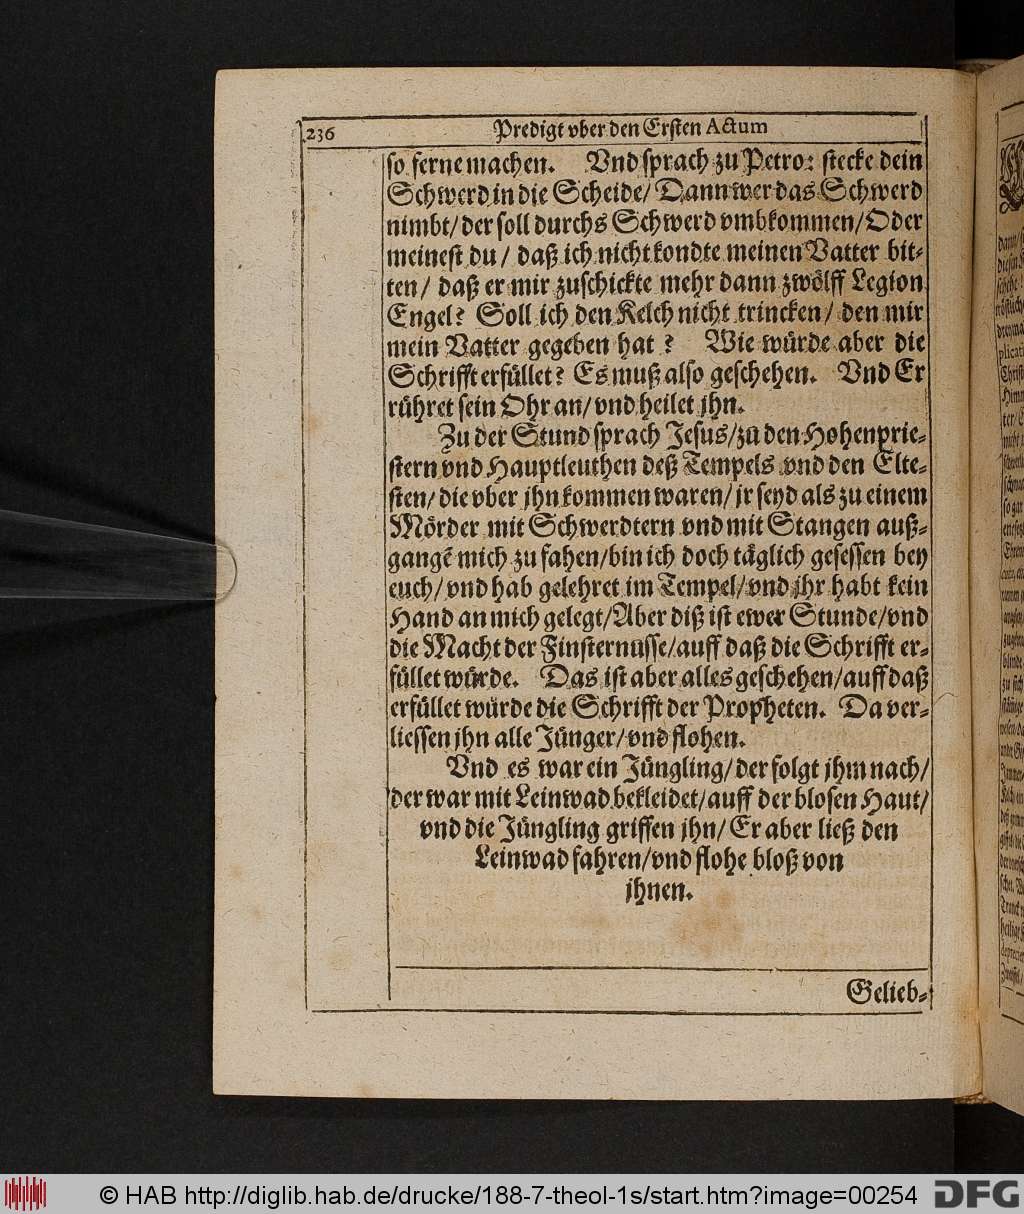 236
Predigt vber den Ersten Actum
so ferne machen. Vnd sprach zu Petro: stecke dein
Schwerd in die Scheide/ Dann wer das Schwerd
nimbt/ der soll durchs Schwerd vmbkommen/ Oder
meinest du/ daß ich nicht kondte meinen Vatter bit-
ten/ daß er mir zuschickte mehr dann zwölff Legion
Engel? Soll ich den Kelch nicht trincken/ den mir
mein Vatter gegeben hat? Wie würde aber die
Schrifft erfüllet? Es muß also geschehen. Vnd Er
rühret sein Ohr an/ vnd heilet jhn.
Zu der Stund sprach Jesus/ zu den Hohenprie-
stern vnd Hauptleuthen deß Tempels vnd den Elte-
sten/ die vber jhn kommen waren/ jr seyd als zu einem
Mörder mit Schwerdtern vnd mit Stangen auß-
gangē mich zu fahen/ bin ich doch täglich gesessen bey
euch/ vnd hab gelehret im Tempel/ vnd jhr habt kein
Hand an mich gelegt/ Aber diß ist ewer Stunde/ vnd
die Macht der Finsternusse/ auff daß die Schrifft er-
füllet würde. Das ist aber alles geschehen/ auff daß
erfüllet würde die Schrifft der Propheten. Da ver-
liessen jhn alle Jünger/ vnd flohen.
Vnd es war ein Jüngling/ der folgt jhm nach/
der war mit Leinwad bekleidet/ auff der blosen Haut/
vnd die Jüngling griffen jhn/ Er aber ließ den
Leinwad fahren/ vnd flohe bloß von
jhnen.
Gelieb-
© HAB http://diglib.hab.de/drucke/188-7-theol-1s/start.htm?image=00254
DFG